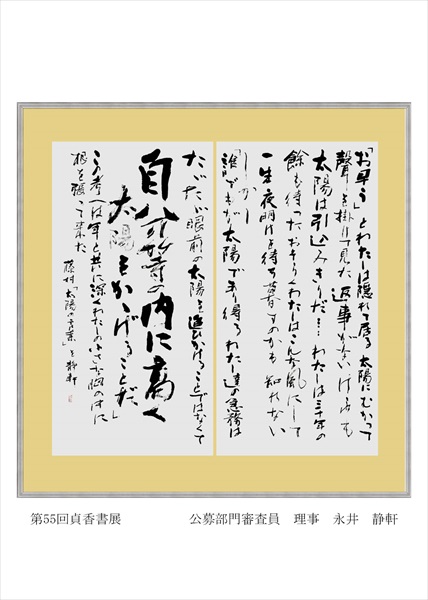 「お早う」とわたしは隠れて居る太陽にむかって
聲を掛けて見た 返事がないけふも
太陽は引込みきりだ… わたしは三十年の
餘も待ったおそらくわたしはこんな風にして
一生夜明けを待ち暮すのかも知れない
しかし
「誰でもが太陽であり得るわたし達の急務は
たゞたゞ眼前の太陽を追ひかけることではなくて
自分等の内に高く
太陽をかゝげることだ」
この考へは年と共に深くわたしの小さな胸の中に
根を張って来た
藤村「太陽の言葉」を 静軒
第55回貞香書展 公募部門審査員 理事 永井 静軒